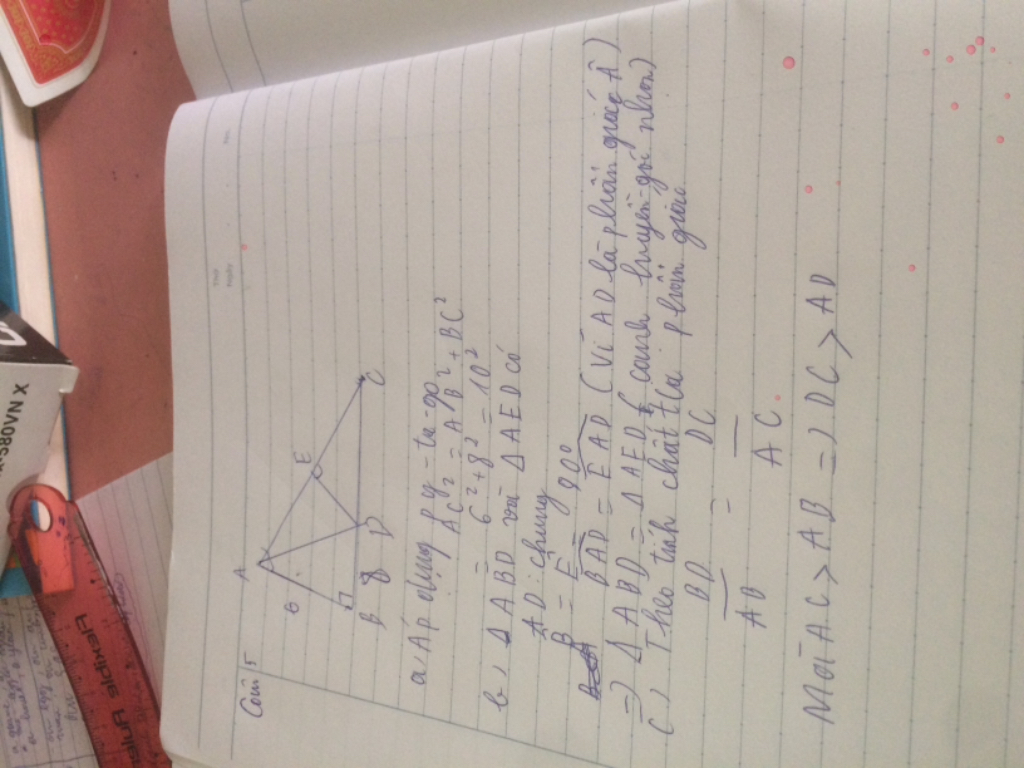 Câu 5
A
6
E
B 8 D C
a. Áp dụng Py-ta-go
AC² = AB² + BC²
= 6² + 8² = 10²
b, Δ ABD và Δ AED có
AD: chung
B = E = 90°
BAD = EAD (Vì AD là phân giác Â)
=> Δ ABD = Δ AED (cạnh huyền-góc nhọn)
c, Theo tính chất phân giác
BD = DC
AB AC
Mà AC > AB => DC > AD
Flexible
X 580VN X